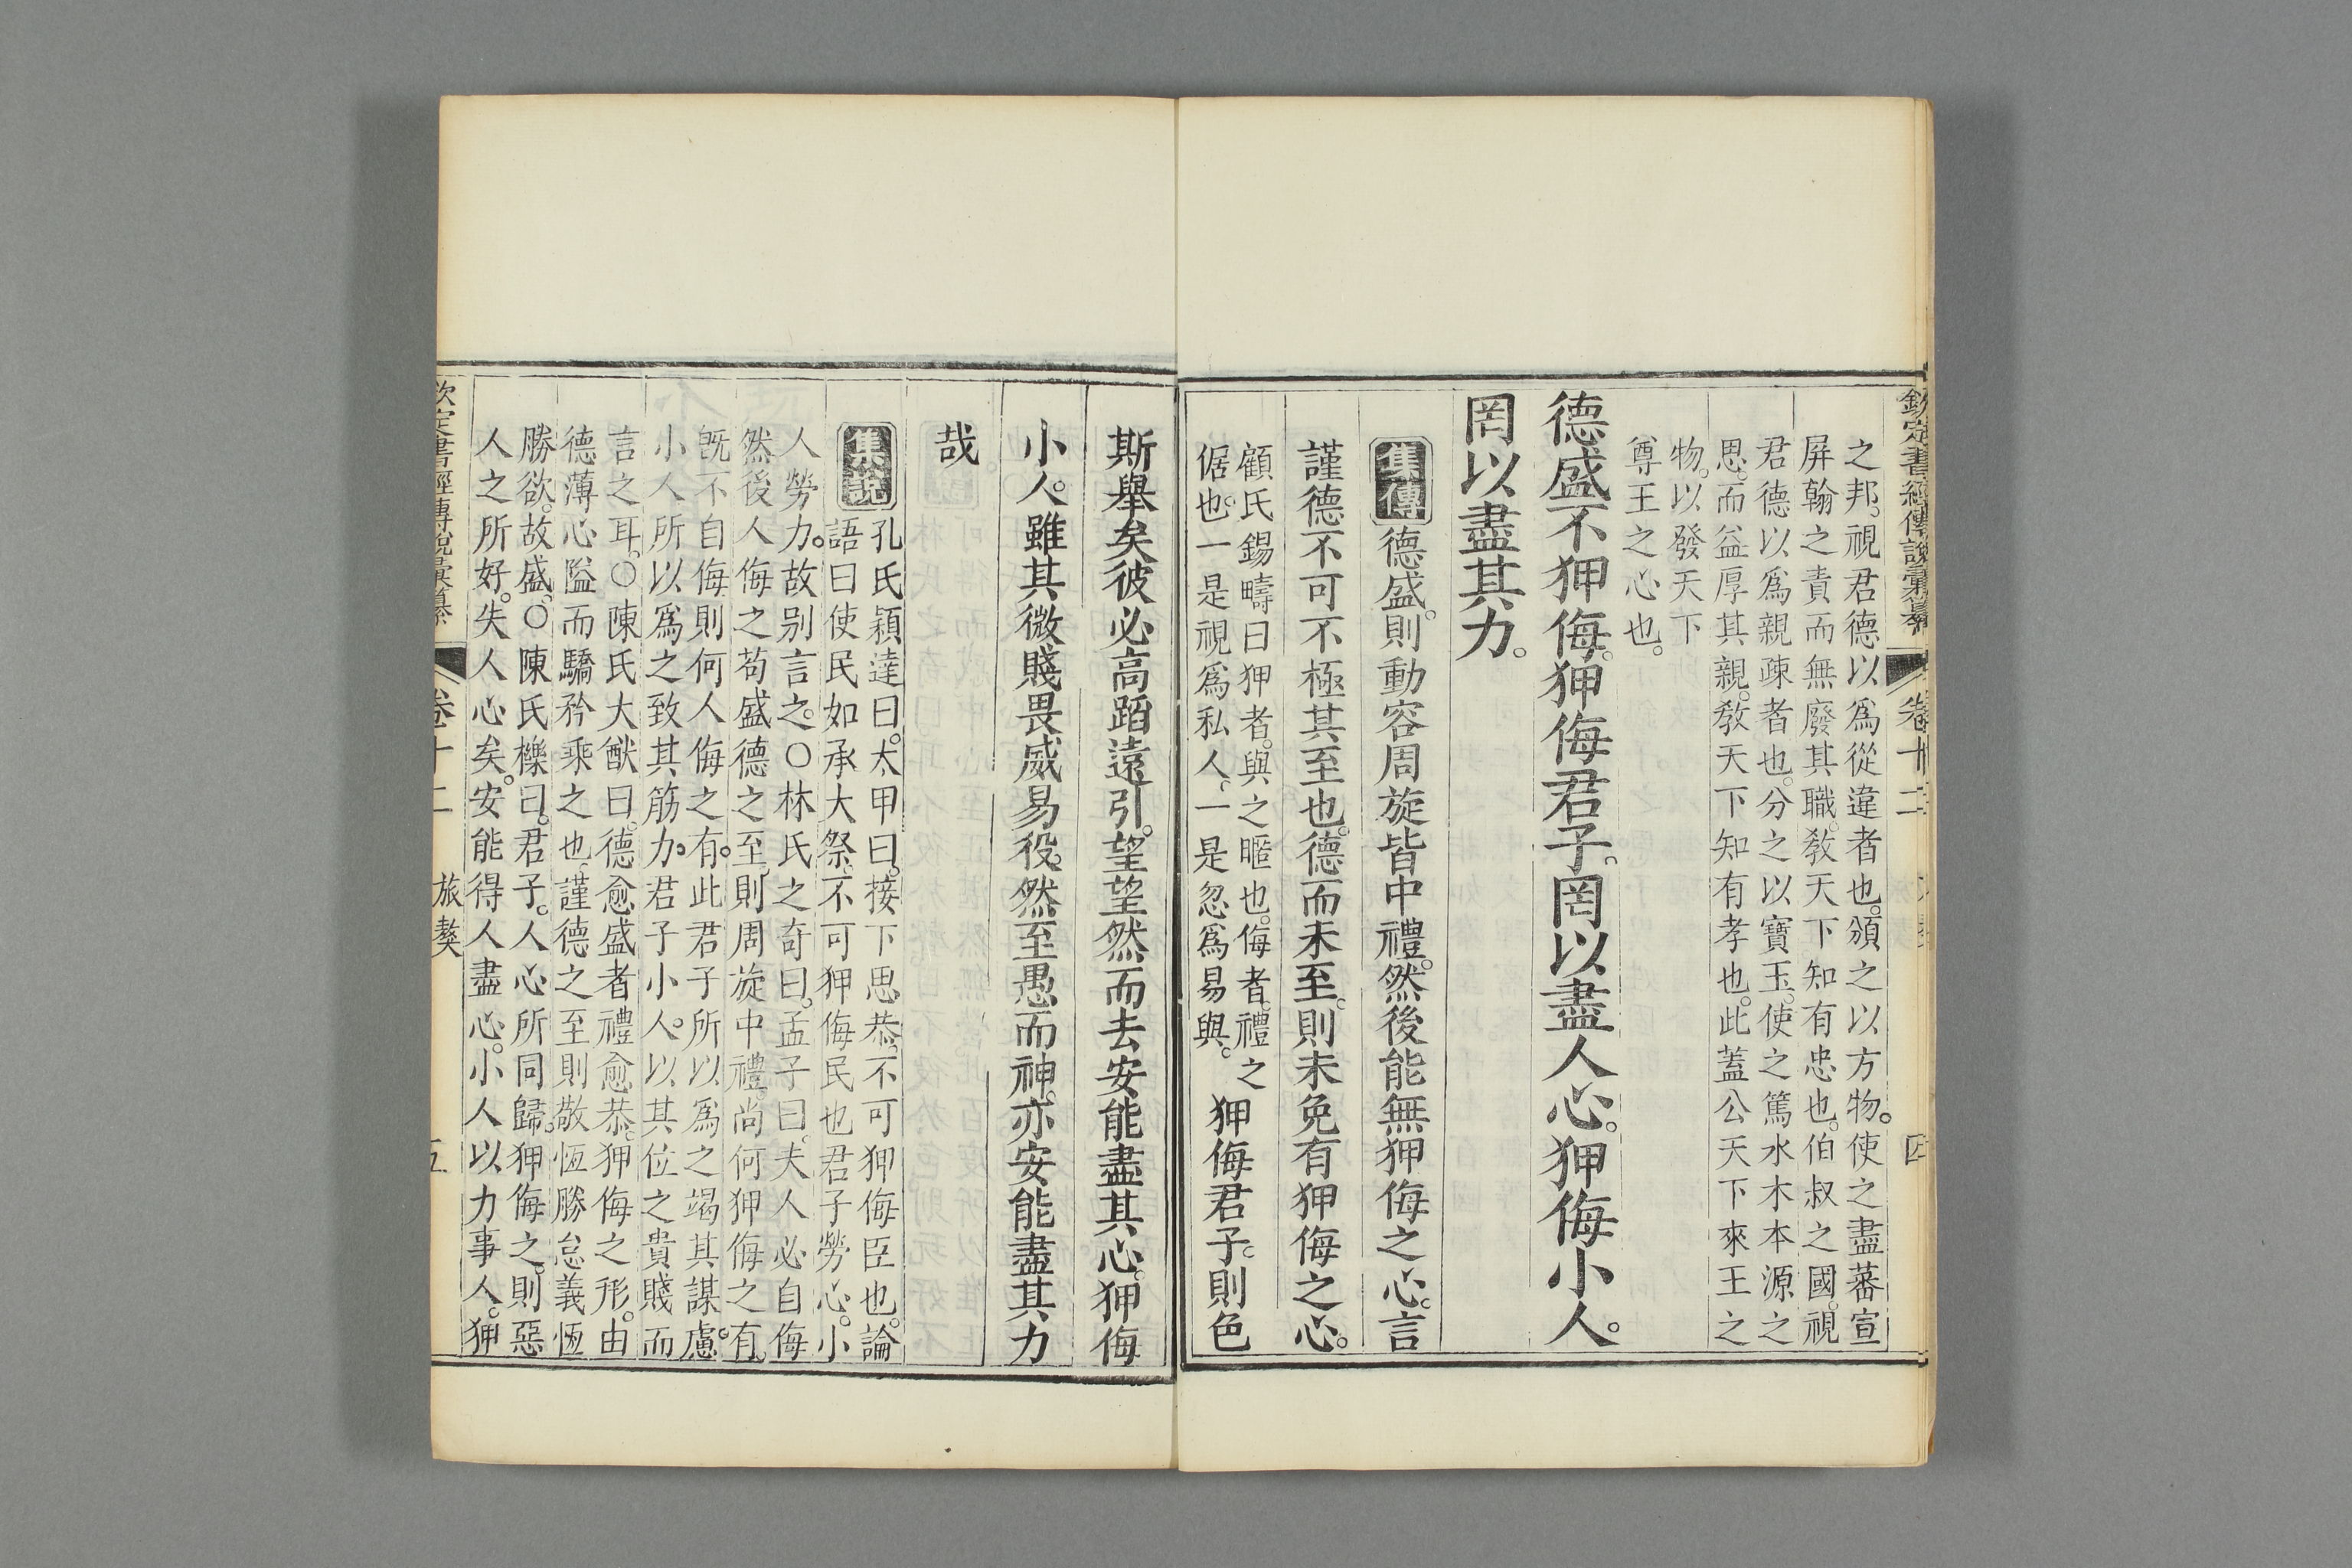 欽定書經傳說彙纂 卷十二 四
之邦。視君德以爲從違者也。頒之以方物。使之盡蕃宣
屏翰之責而無廢其職。敎天下知有忠也。伯叔之國。視
君德以爲親疎者也。分之以寶玉。使之篤水木本源之
思。而益厚其親。敎天下知有孝也。此蓋公天下來王之
物。以發天下
尊王之心也。
德盛不狎侮。狎侮君子。罔以盡人心。狎侮小人。
罔以盡其力。
集傳 德盛。則動容周旋皆中禮。然後能無狎侮之心。言
謹德不可不極其至也。德而未至。則未免有狎侮之心。
顧氏錫疇曰狎者。與之暱也。侮者。禮之
倨也。一是視爲私人。一是忽爲易與。
狎侮君子。則色
斯舉矣彼必高蹈遠引。望望然而去安能盡其心。狎侮
小人。雖其微賤畏威易役。然至愚而神。亦安能盡其力
哉
集說 孔氏穎達曰。太甲曰。接下思恭。不可狎侮臣也。論
語曰使民如承大祭。不可狎侮民也君子勞心。小
人勞力。故别言之。○林氏之奇曰。孟子曰。夫人必自侮
然後人侮之苟盛德之至。則周旋中禮。尚何狎侮之有。
旣不自侮則何人侮之有。此君子所以爲之竭其謀慮。
小人所以爲之致其筋力。君子小人。以其位之貴賤而
言之耳。○陳氏大猷曰。德愈盛者禮愈恭。狎侮之形。由
德薄心隘而驕矜乘之也。謹德之至則敬恆勝怠義恆
勝欲。故盛。○陳氏櫟曰。君子。人心所同歸。狎侮之。則惡
人之所好。失人心矣。安能得人盡心。小人以力事人。狎
欽定書經傳說彙纂 卷十二 旅獒 五